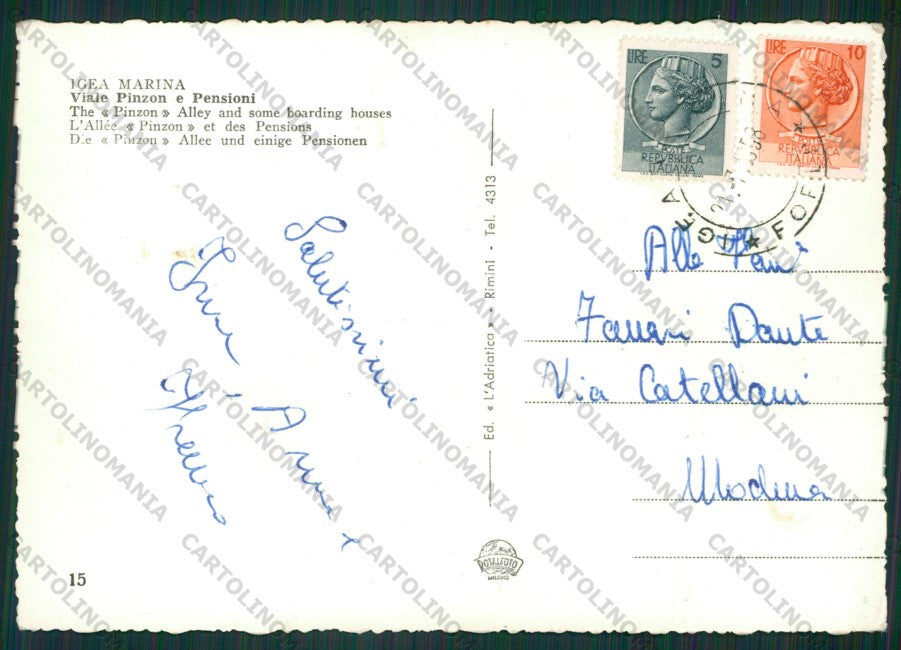 IGEA MARINA
Viale Pinzon e Pensioni
The « Pinzon » Alley and some boarding houses
L'Allée « Pinzon » et des Pensions
Die « Pinzon » Allee und einige Pensionen
Salutissimi
Anna e
Alfredo
15
Ed. « L'Adriatica » - Rimini - Tel. 4313
ROTALFOTO
MILANO
LIRE 5
REPVBBLICA
ITALIANA
LIRE 10
REPVBBLICA
ITALIANA
IGEA
FORLI
Alla Fam
Ferrari Dante
Via Catellani
Modena
CARTOLINOMANIA